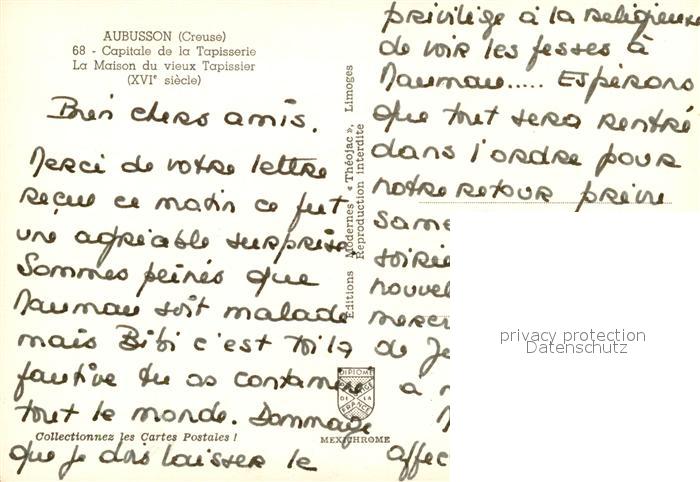 AUBUSSON (Creuse)
68 - Capitale de la Tapisserie
La Maison du vieux Tapissier
(XVIe siècle)
Bien chers amis.
Merci de votre lettre
reçue ce matin ce fut
une agréable surprise,
Sommes peinés que
Maumau soit malade
mais Bibi c'est toi la
fautive tu as contaminé
tout le monde. Dommage
que je dois laisser le
Collectionnez les Cartes Postales !
Editions Modernes « Théojac », Limoges
Reproduction interdite
DIPLOME
PRESTIGE
DE LA
FRANCE
MEXICHROME
privilège à la religieuse
de voir les fesses à
Maumau..... Espérons
que tout sera rentré
dans l'ordre pour
notre retour prévu
same
soirée
nouvel
merci
de Je
a
affec
privacy protection
Datenschutz